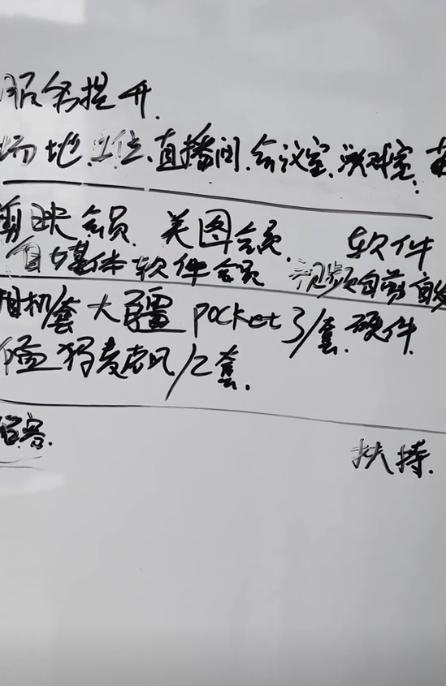 服务提升.
场地.工位、直播间.会议室.洽谈室.
剪映会员. 美图会员. 软件
自媒体软件会员 视频自剪
相机/套 大疆 pocket3/套. 硬件
麦克风/2套.
扶持.